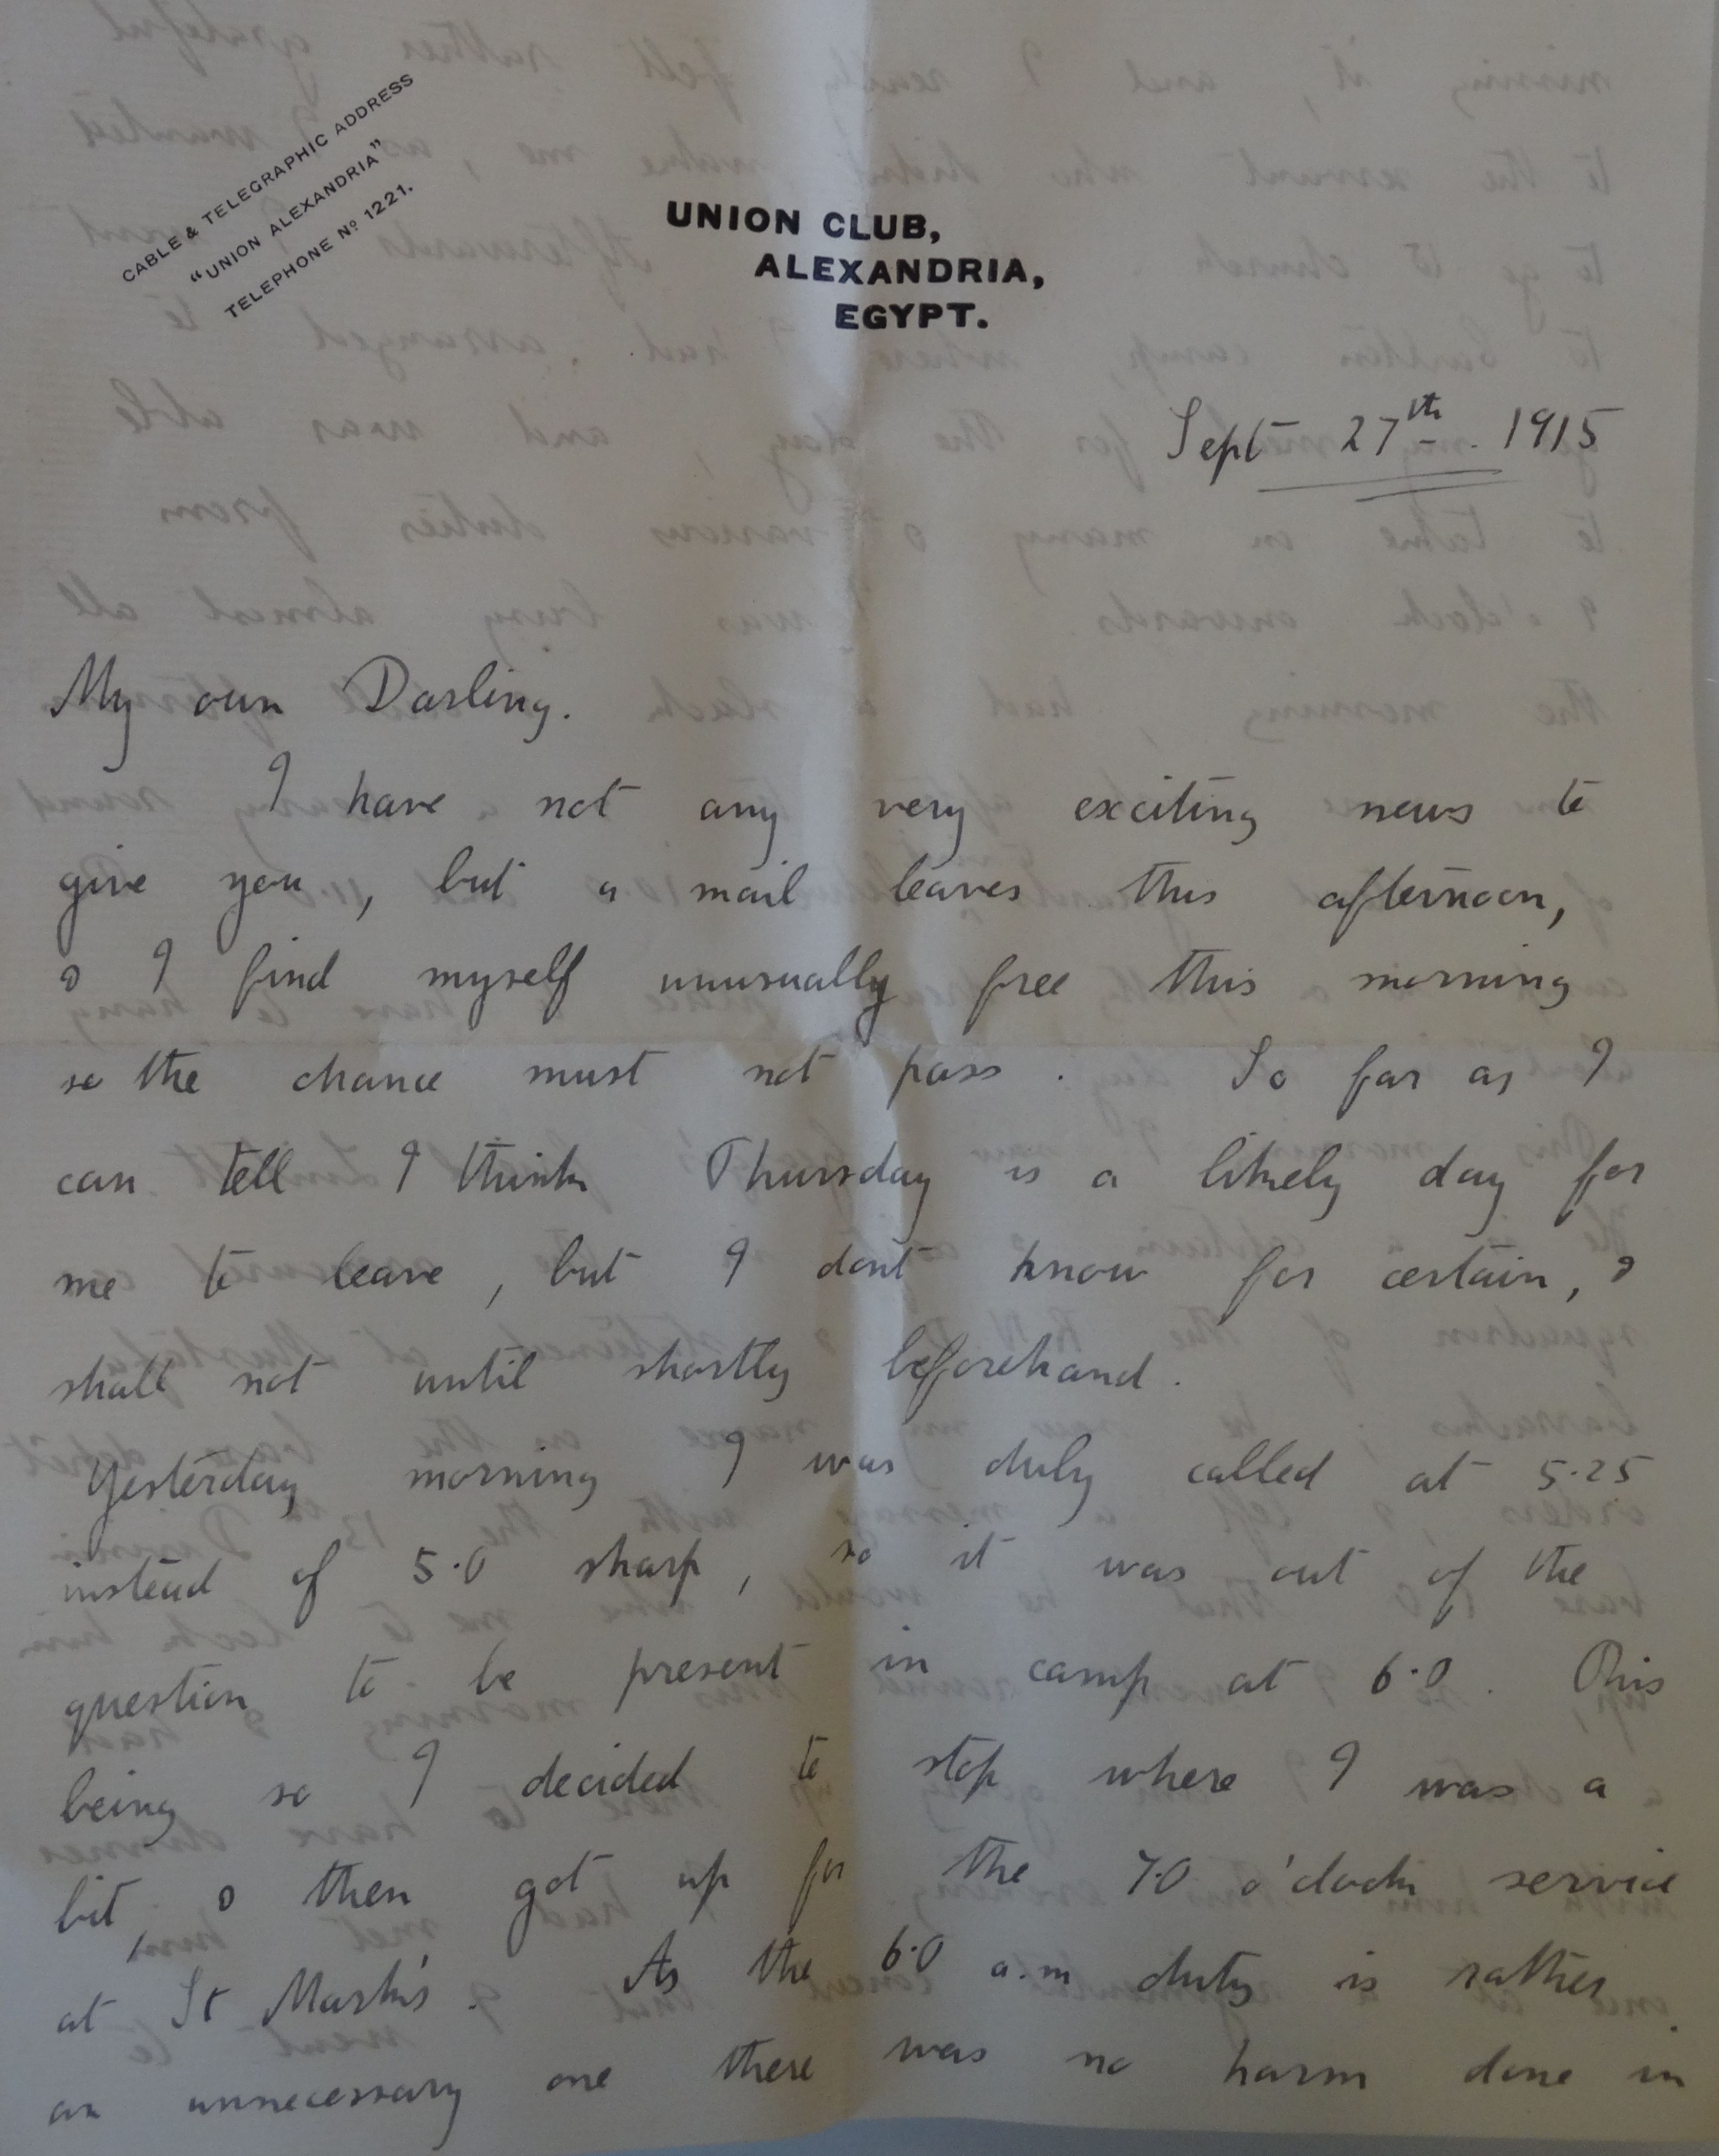 CABLE & TELEGRAPHIC ADDRESS
"UNION ALEXANDRIA"
TELEPHONE Nº 1221.
UNION CLUB,
ALEXANDRIA,
EGYPT.
Sept 27th. 1915
My own Darling.
I have not any very exciting news to
give you, but a mail leaves this afternoon,
& I find myself unusually free this morning
so the chance must not pass. So far as I
can tell I think Thursday is a likely day for
me to leave, but I dont know for certain, &
shall not until shortly beforehand.
Yesterday morning I was duly called at 5.25
instead of 5.0 sharp, so it was out of the
question to be present in camp at 6.0. This
being so I decided to stop where I was a
bit, & then got up for the 7.0 o'clock service
at St Mark's. As the 6.0 a.m duty is rather
an unnecessary one there was no harm done in